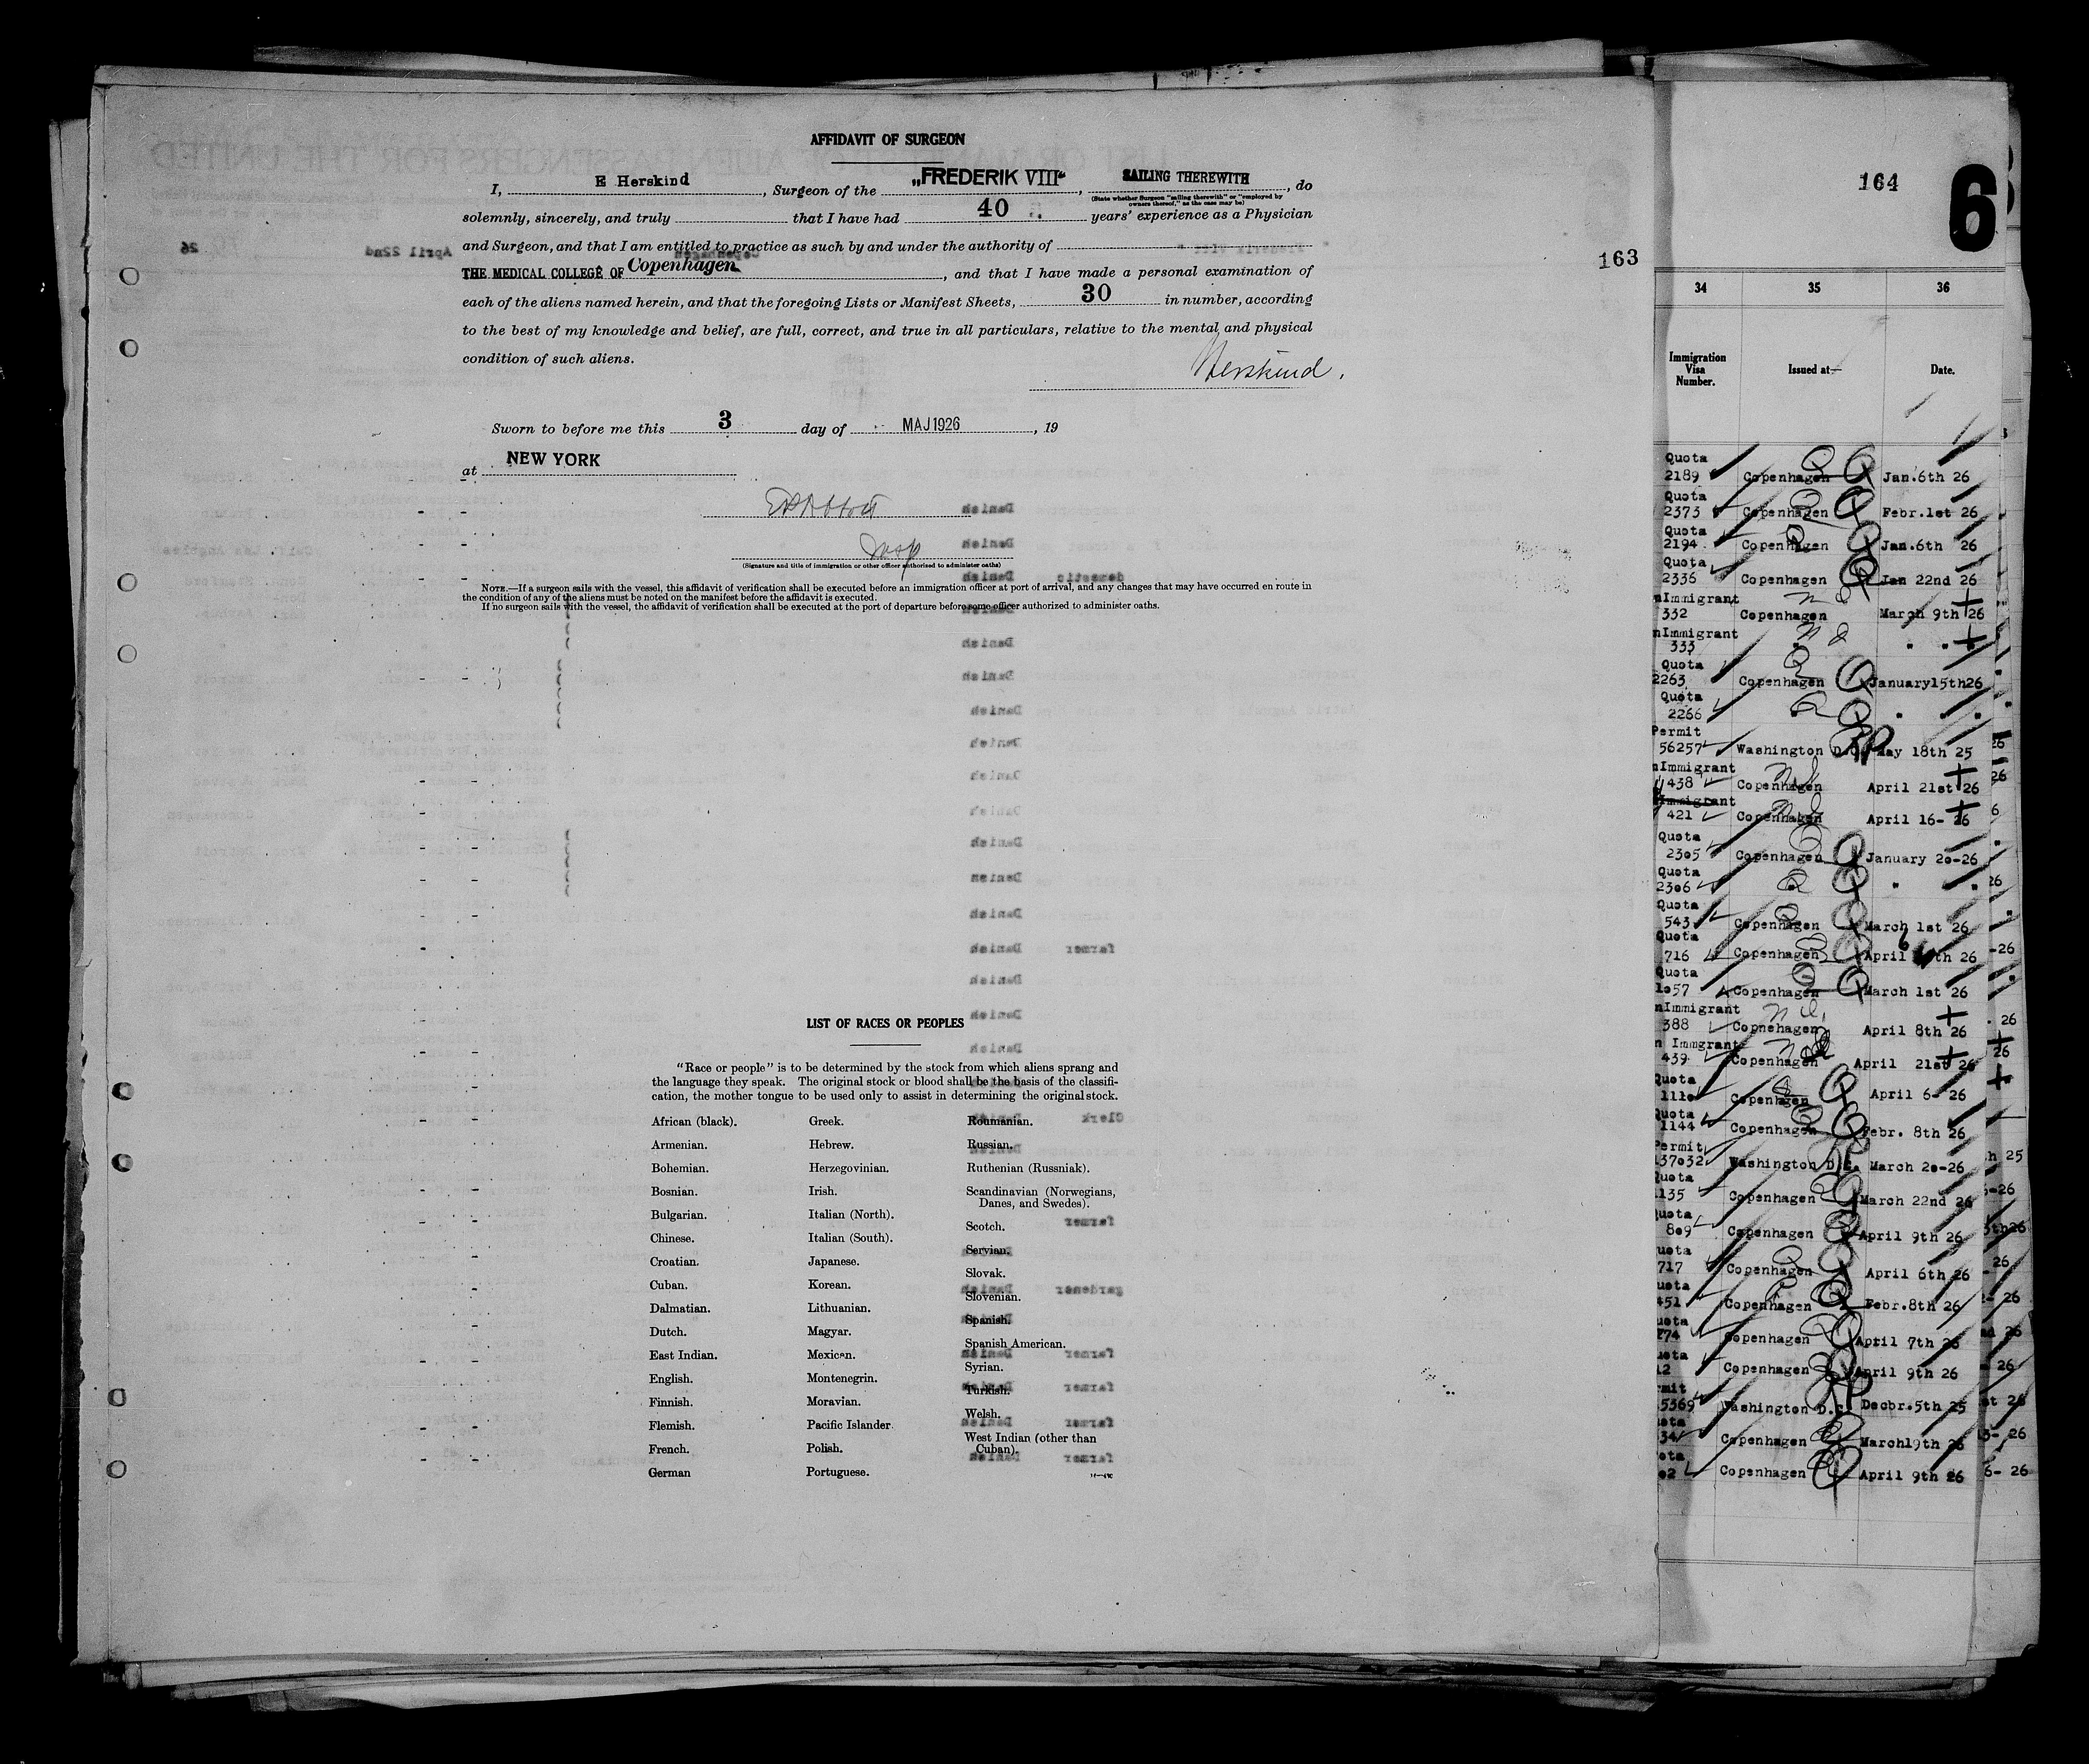 AFFIDAVIT OF SURGEON
I, E Herskind, Surgeon of the „FREDERIK VIII“, SAILING THEREWITH, do
(State whether Surgeon "sailing therewith" or "employed by owners thereof," as the case may be)
solemnly, sincerely, and truly that I have had 40 years' experience as a Physician
and Surgeon, and that I am entitled to practice as such by and under the authority of
THE MEDICAL COLLEGE OF Copenhagen, and that I have made a personal examination of
each of the aliens named herein, and that the foregoing Lists or Manifest Sheets, 30 in number, according
to the best of my knowledge and belief, are full, correct, and true in all particulars, relative to the mental and physical
condition of such aliens.
Herskind.
Sworn to before me this 3 day of MAJ 1926, 19
at NEW YORK
Insp
(Signature and title of immigration or other officer authorised to administer oaths)
NOTE.—If a surgeon sails with the vessel, this affidavit of verification shall be executed before an immigration officer at port of arrival, and any changes that may have occurred en route in
the condition of any of the aliens must be noted on the manifest before the affidavit is executed.
If no surgeon sails with the vessel, the affidavit of verification shall be executed at the port of departure before some officer authorized to administer oaths.
163
LIST OF RACES OR PEOPLES
"Race or people" is to be determined by the stock from which aliens sprang and
the language they speak. The original stock or blood shall be the basis of the classifi-
cation, the mother tongue to be used only to assist in determining the original stock.
African (black).
Armenian.
Bohemian.
Bosnian.
Bulgarian.
Chinese.
Croatian.
Cuban.
Dalmatian.
Dutch.
East Indian.
English.
Finnish.
Flemish.
French.
German
Greek.
Hebrew.
Herzegovinian.
Irish.
Italian (North).
Italian (South).
Japanese.
Korean.
Lithuanian.
Magyar.
Mexican.
Montenegrin.
Moravian.
Pacific Islander.
Polish.
Portuguese.
Roumanian.
Russian.
Ruthenian (Russniak).
Scandinavian (Norwegians,
Danes, and Swedes).
Scotch.
Servian.
Slovak.
Slovenian.
Spanish.
Spanish American.
Syrian.
Turkish.
Welsh.
West Indian (other than
Cuban).
164
6
34 35 36
Immigration Visa Number. Issued at— Date.
Quota
2189 Copenhagen Jan.6th 26
Quota
2373 Copenhagen Febr.1st 26
Quota
2194 Copenhagen Jan.6th 26
Quota
2336 Copenhagen Jan 22nd 26
nImmigrant
332 Copenhagen March 9th 26
nImmigrant
333 " " "
Quota
2263 Copenhagen January15th26
Quota
2266 " " " "
Permit
56257 Washington D.C. May 18th 25
nImmigrant
438 Copenhagen April 21st 26
Immigrant
421 Copenhagen April 16- 26
Quota
2305 Copenhagen January 20-26
Quota
2306 " " "
Quota
543 Copenhagen March 1st 26
Quota
716 Copenhagen April 6th 26
Quota
1057 Copenhagen March 1st 26
nImmigrant
388 Copnehagen April 8th 26
n Immgrant
439 Copenhagen April 21st 26
Quota
1110 Copenhagen April 6- 26
Quota
1144 Copenhagen Febr. 8th 26
Permit
137032 Washington D.C. March 20-26
Quota
1135 Copenhagen March 22nd 26
uota
809 Copenhagen April 9th 26
uota
717 Copenhagen April 6th 26
uota
451 Copenhagen Febr.8th 26
uota
774 Copenhagen April 7th 26
uota
12 Copenhagen April 9th 26
mit
5369 Washington D.C. Decbr.5th 25
ota
34 Copenhagen March19th 26
ota
02 Copenhagen April 9th 26